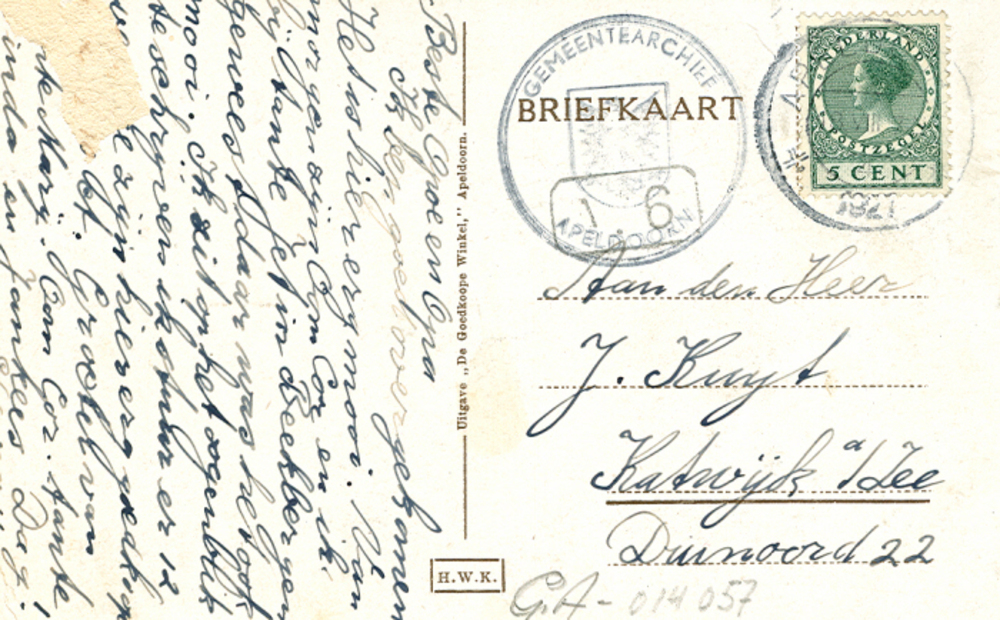 Beste Opoe en Opa
Ik ben goed overgekomen
Het is hier erg mooi. Van
morgen zijn Oom Cor en ik
bij tante Jet in Beekbergen
geweest daar was het ook
mooi. Ik zit op het oogenblik
te schrijven ik stuur er 12
zijn hier
Groeten van
Marij. Oom Cor. tante
en Jankees Dag!
Uitgave „De Goedkoope Winkel," Apeldoorn.
H.W.K.
GEMEENTEARCHIEF
APELDOORN
BRIEFKAART
1 6
NEDERLAND
POSTZEGEL
5 CENT
Aan den Heer
J. Kuyt
Katwijk a/Zee
Duinoord 22
G.A - 014057